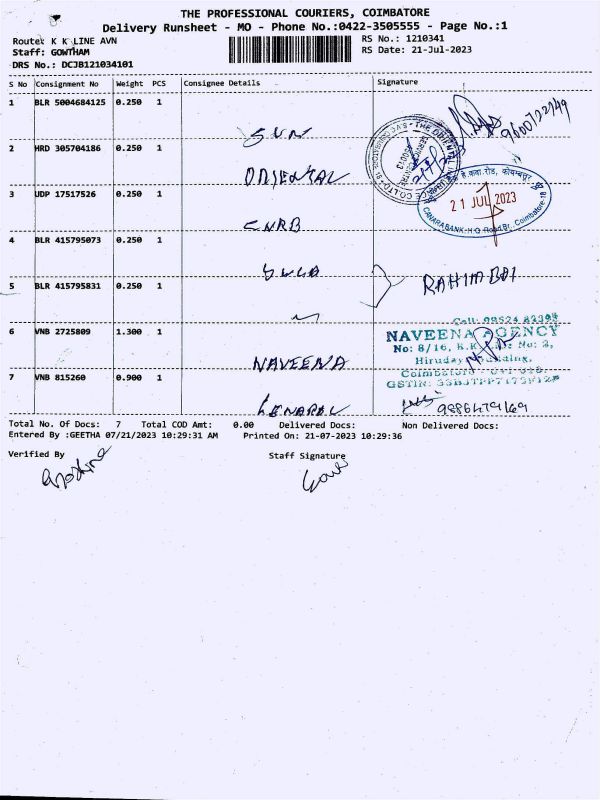 THE PROFESSIONAL COURIERS, COIMBATORE
Delivery Runsheet - MO - Phone No.:0422-3505555 - Page No.:1
Route: K K LINE AVN
RS No.: 1210341
Staff: GOWTHAM
RS Date: 21-Jul-2023
DRS No.: DCJB121034101
S No Consignment No Weight PCS Consignee Details Signature
1 BLR 5004684125 0.250 1
SUN
9600722949
2 HRD 305704186 0.250 1
ORIENTAL
THE ORIENTAL
3 UDP 17517526 0.250 1
CNRB
21 JUL 2023
CANARA BANK, H.O. Road Br., Coimbatore-18
4 BLR 415795073 0.250 1
RAHIM BOI
5 BLR 415795831 0.250 1
NAVEENA AGENCY
6 VNB 2725809 1.300 1
NAVEENA
No: 8/16, K.K.
Coimbatore
GSTIN:
7 VNB 815260 0.900 1
9886479169
Total No. Of Docs: 7 Total COD Amt: 0.00 Delivered Docs: Non Delivered Docs:
Entered By :GEETHA 07/21/2023 10:29:31 AM Printed On: 21-07-2023 10:29:36
Verified By Staff Signature